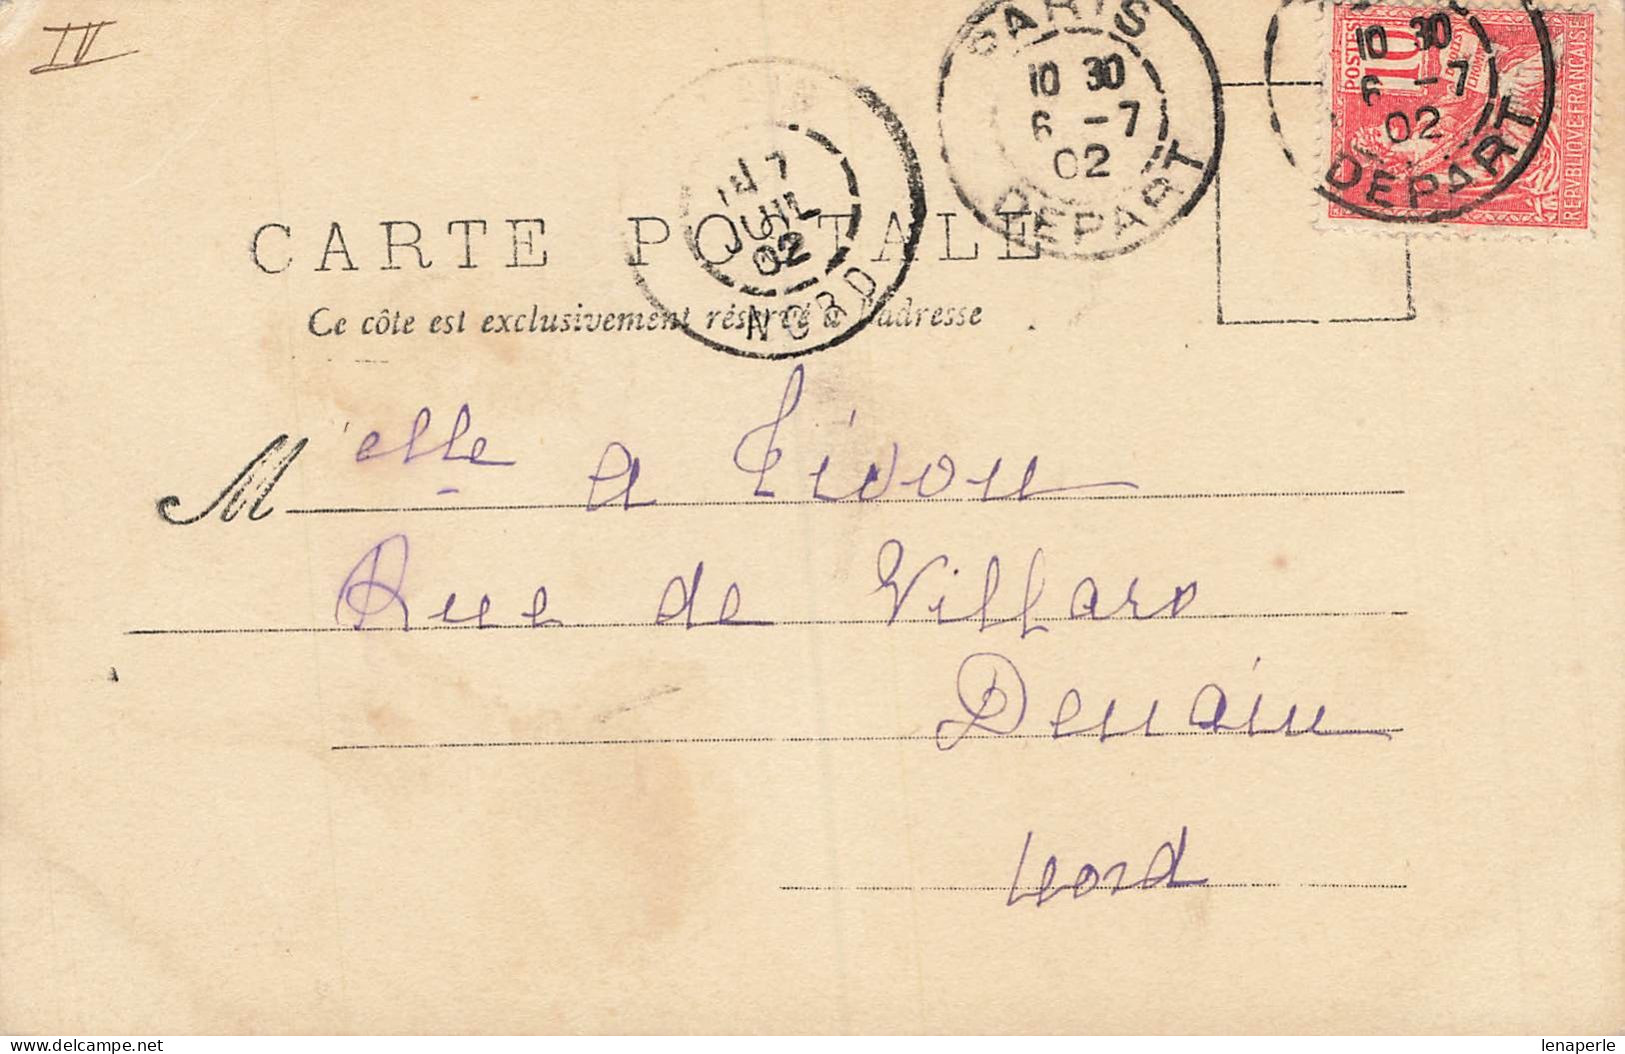 IV
PARIS
10 30
6 -7
02
DEPART
10 30
6 -7
02
DEPART
POSTES
10
REPVBLIQVE FRANÇAISE
7
JUIL
02
NORD
CARTE POSTALE
Ce côté est exclusivement réservé à l'adresse
M elle a Livou
Rue de Villars
Denain
Nord
lenaperle